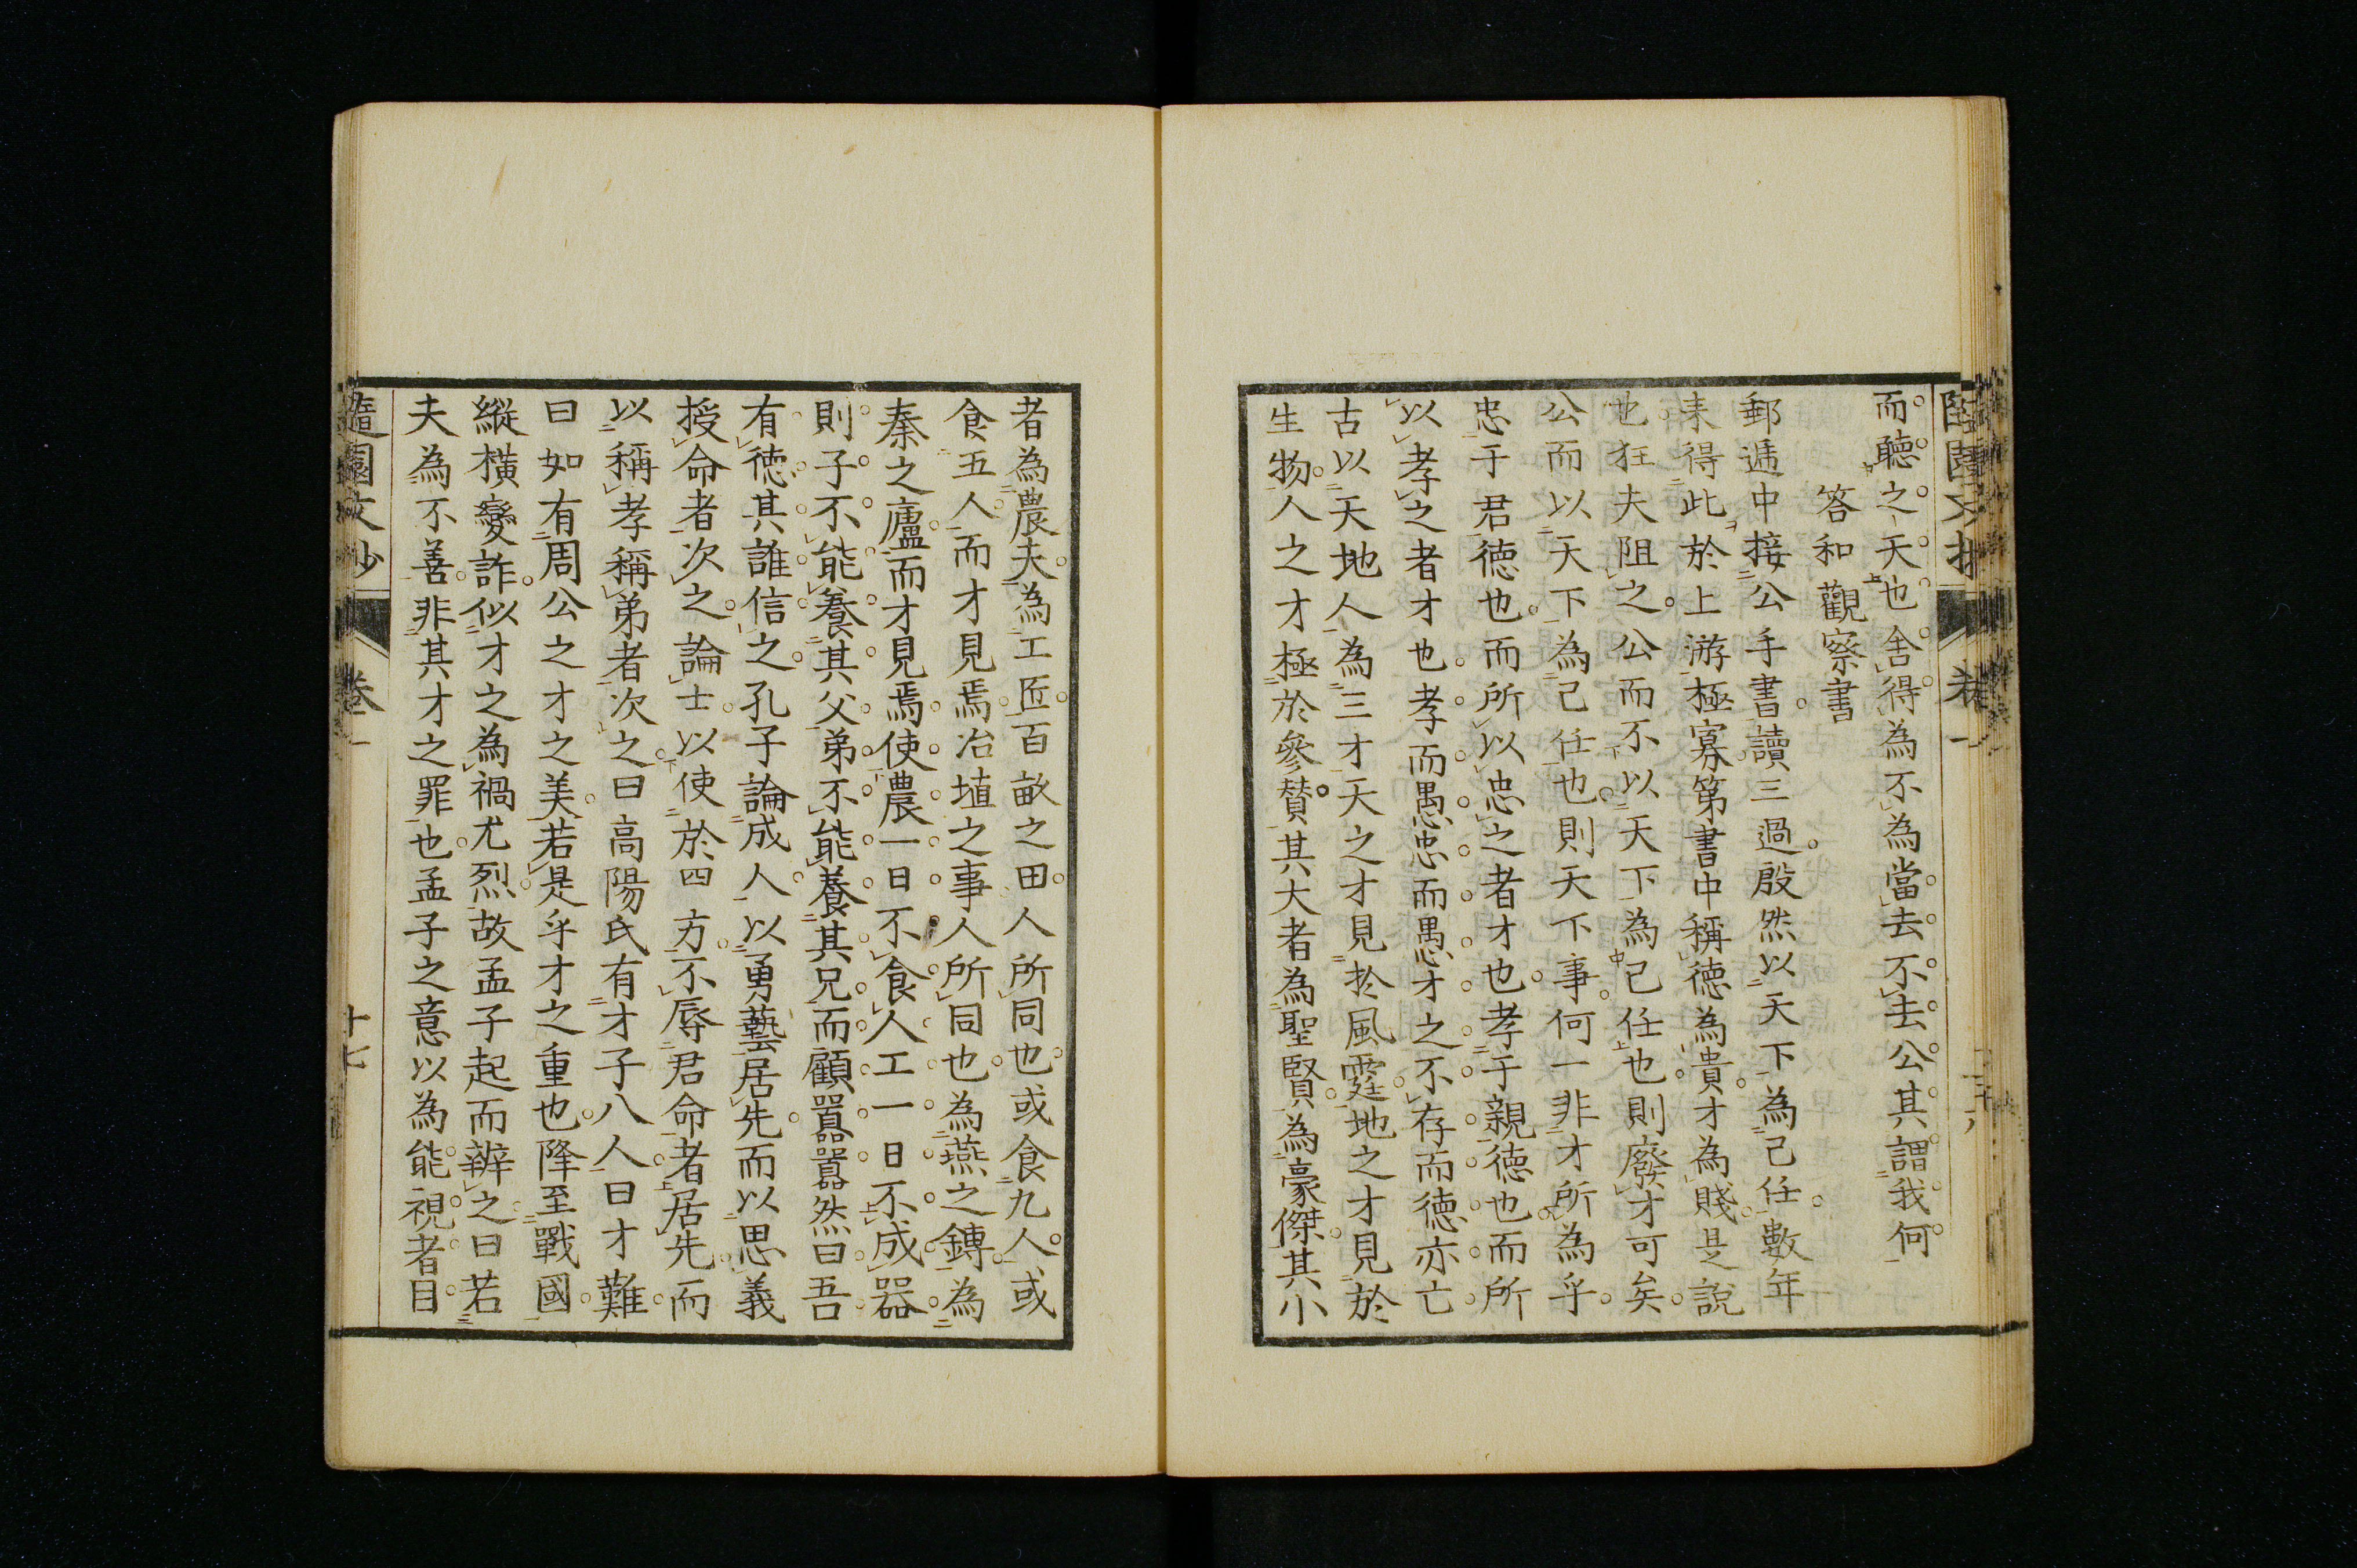 而聽之天也舍得為不為當去不去公其謂我何
答和觀察書
郵遞中接公手書讀三過殷然以天下為己任數年
来得此於上游極寡第書中稱德為貴才為賤是說
也狂夫阻之公而不以天下為己任也則廢才可矣
公而以天下為己任也則天下事何一非才所為乎
忠于君德也而所以忠之者才也孝于親德也而所
以孝之者才也孝而愚忠而愚才之不存而德亦亡
古以天地人為三才天之才見於風霆地之才見於
生物人之才極於參賛其大者為聖賢為豪傑其小
者為農夫為工匠百畝之田人所同也或食九人或
食五人而才見焉冶埴之事人所同也為燕之鏄為
秦之廬而才見焉使農一日不食人工一日不成器
則子不能養其父弟不能養其兄而顧嚚嚚然曰吾
有徳其誰信之孔子論成人以勇藝居先而以思義
授命者次之論士以使於四方不辱君命者居先而
以稱孝稱弟者次之曰高陽氏有才子八人曰才難
曰如有周公之才之美若是乎才之重也降至戰國
縱橫變詐似才之為禍尤烈故孟子起而辨之曰若
夫為不善非其才之罪也孟子之意以為能視者目
隨園文鈔 卷一 十七